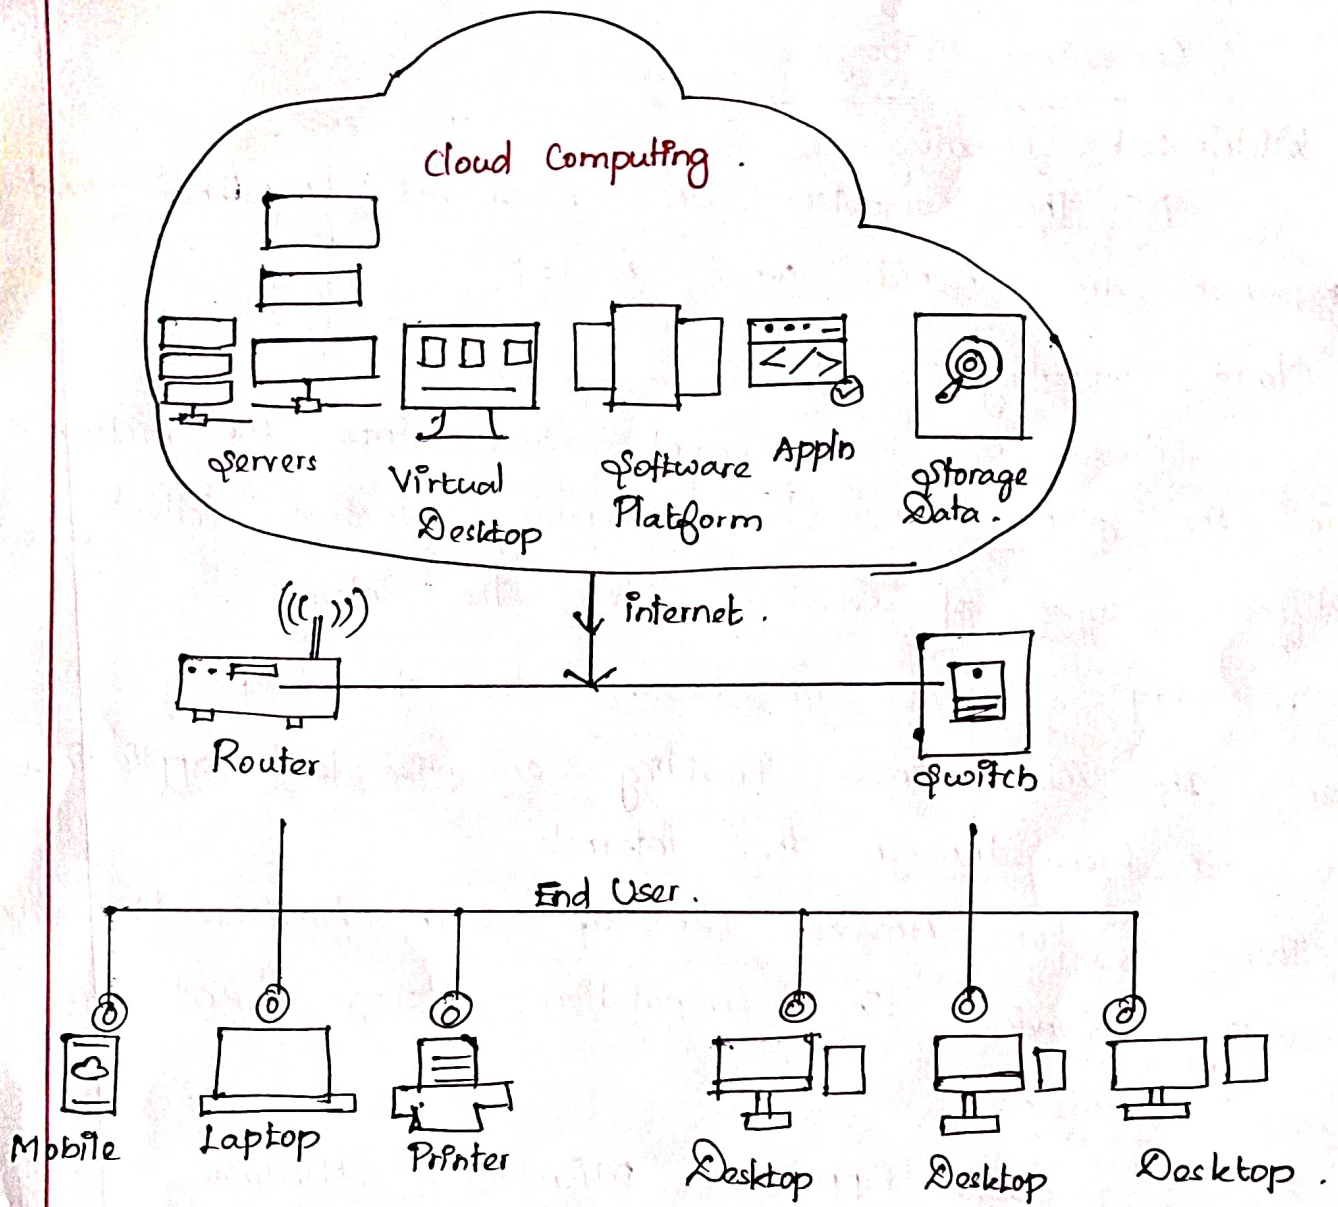 Cloud Computing .
Servers
Virtual
Desktop
Software
Platform
Appln
</>
Storage
Data .
internet .
Router
Switch
End User .
Mobile
Laptop
Printer
Desktop
Desktop
Desktop .